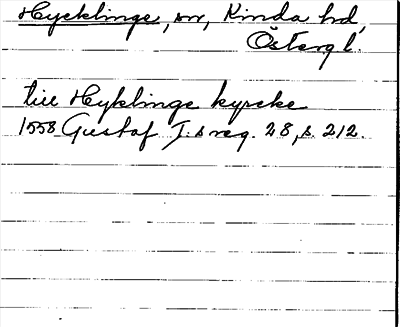 Hycklinge, sn, Kinda hd,
Östergl.
till Hyklinge kyrcke
1558 Gustaf I:s reg. 28, s. 212.